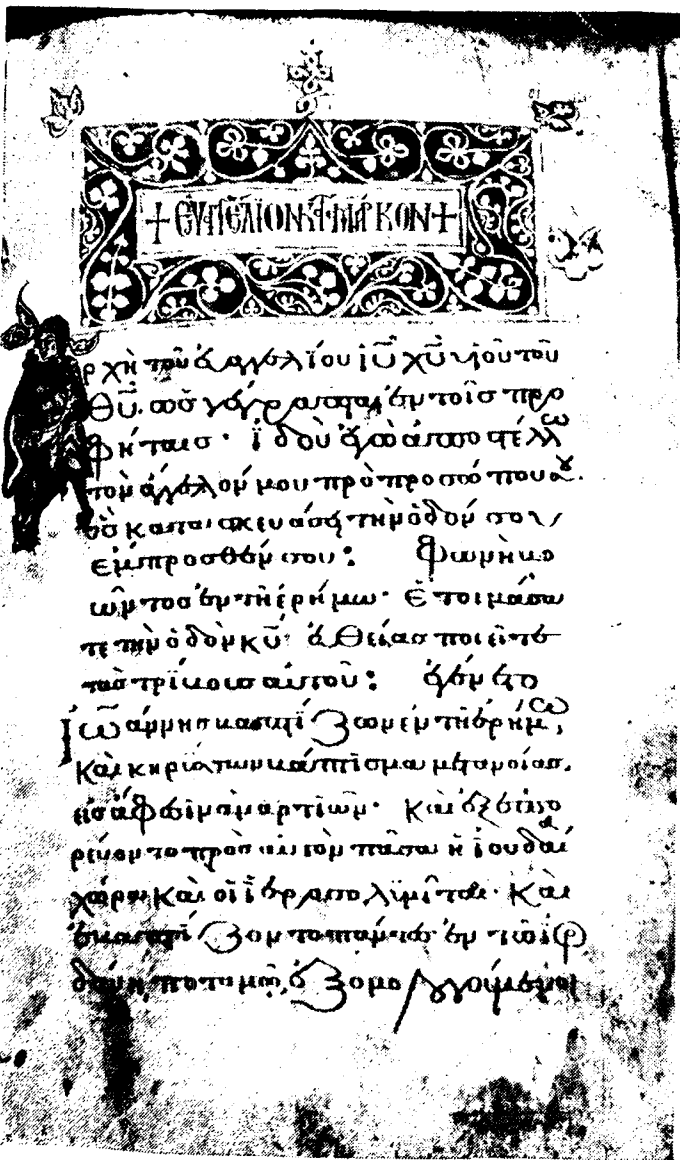 +ΕΥΑΓΓΕΛΙΟΝ ΚΑΤ ΜΑΡΚΟΝ+
ρχὴ τοῦ εὐαγγελίου ἰῦ χῦ υἱοῦ τοῦ
θῦ. ὡς γέγραπται ἐν τοῖς προ
φήταις· ἰδοὺ ἐγὼ ἀποστέλλω
τὸν ἄγγελόν μου πρὸ προσώπου σου.
ὃς κατασκευάσει τὴν ὁδόν σου
ἔμπροσθέν σου: φωνὴ βο
ῶντος ἐν τῆ ἐρήμω· ἑτοιμάσα
τε τὴν ὁδὸν κῦ· εὐθείας ποιεῖτε
τὰς τρίβους αὐτοῦ: ἐγένετο
Ἰωάννης βαπτίζων ἐν τῆ ἐρήμω,
καὶ κηρύσσων βάπτισμα μετανοίας.
εἰς ἄφεσιν ἁμαρτιῶν· καὶ ἐξεπο
ρεύοντο πρὸς αὐτὸν πᾶσα ἡ ἰουδαία
χώρα καὶ οἱ ἱεροσολυμῖται· καὶ
ἐβαπτίζοντο πάντες ἐν τῶ ἰορ
δάνη ποταμῶ ἐξομολογούμενοι